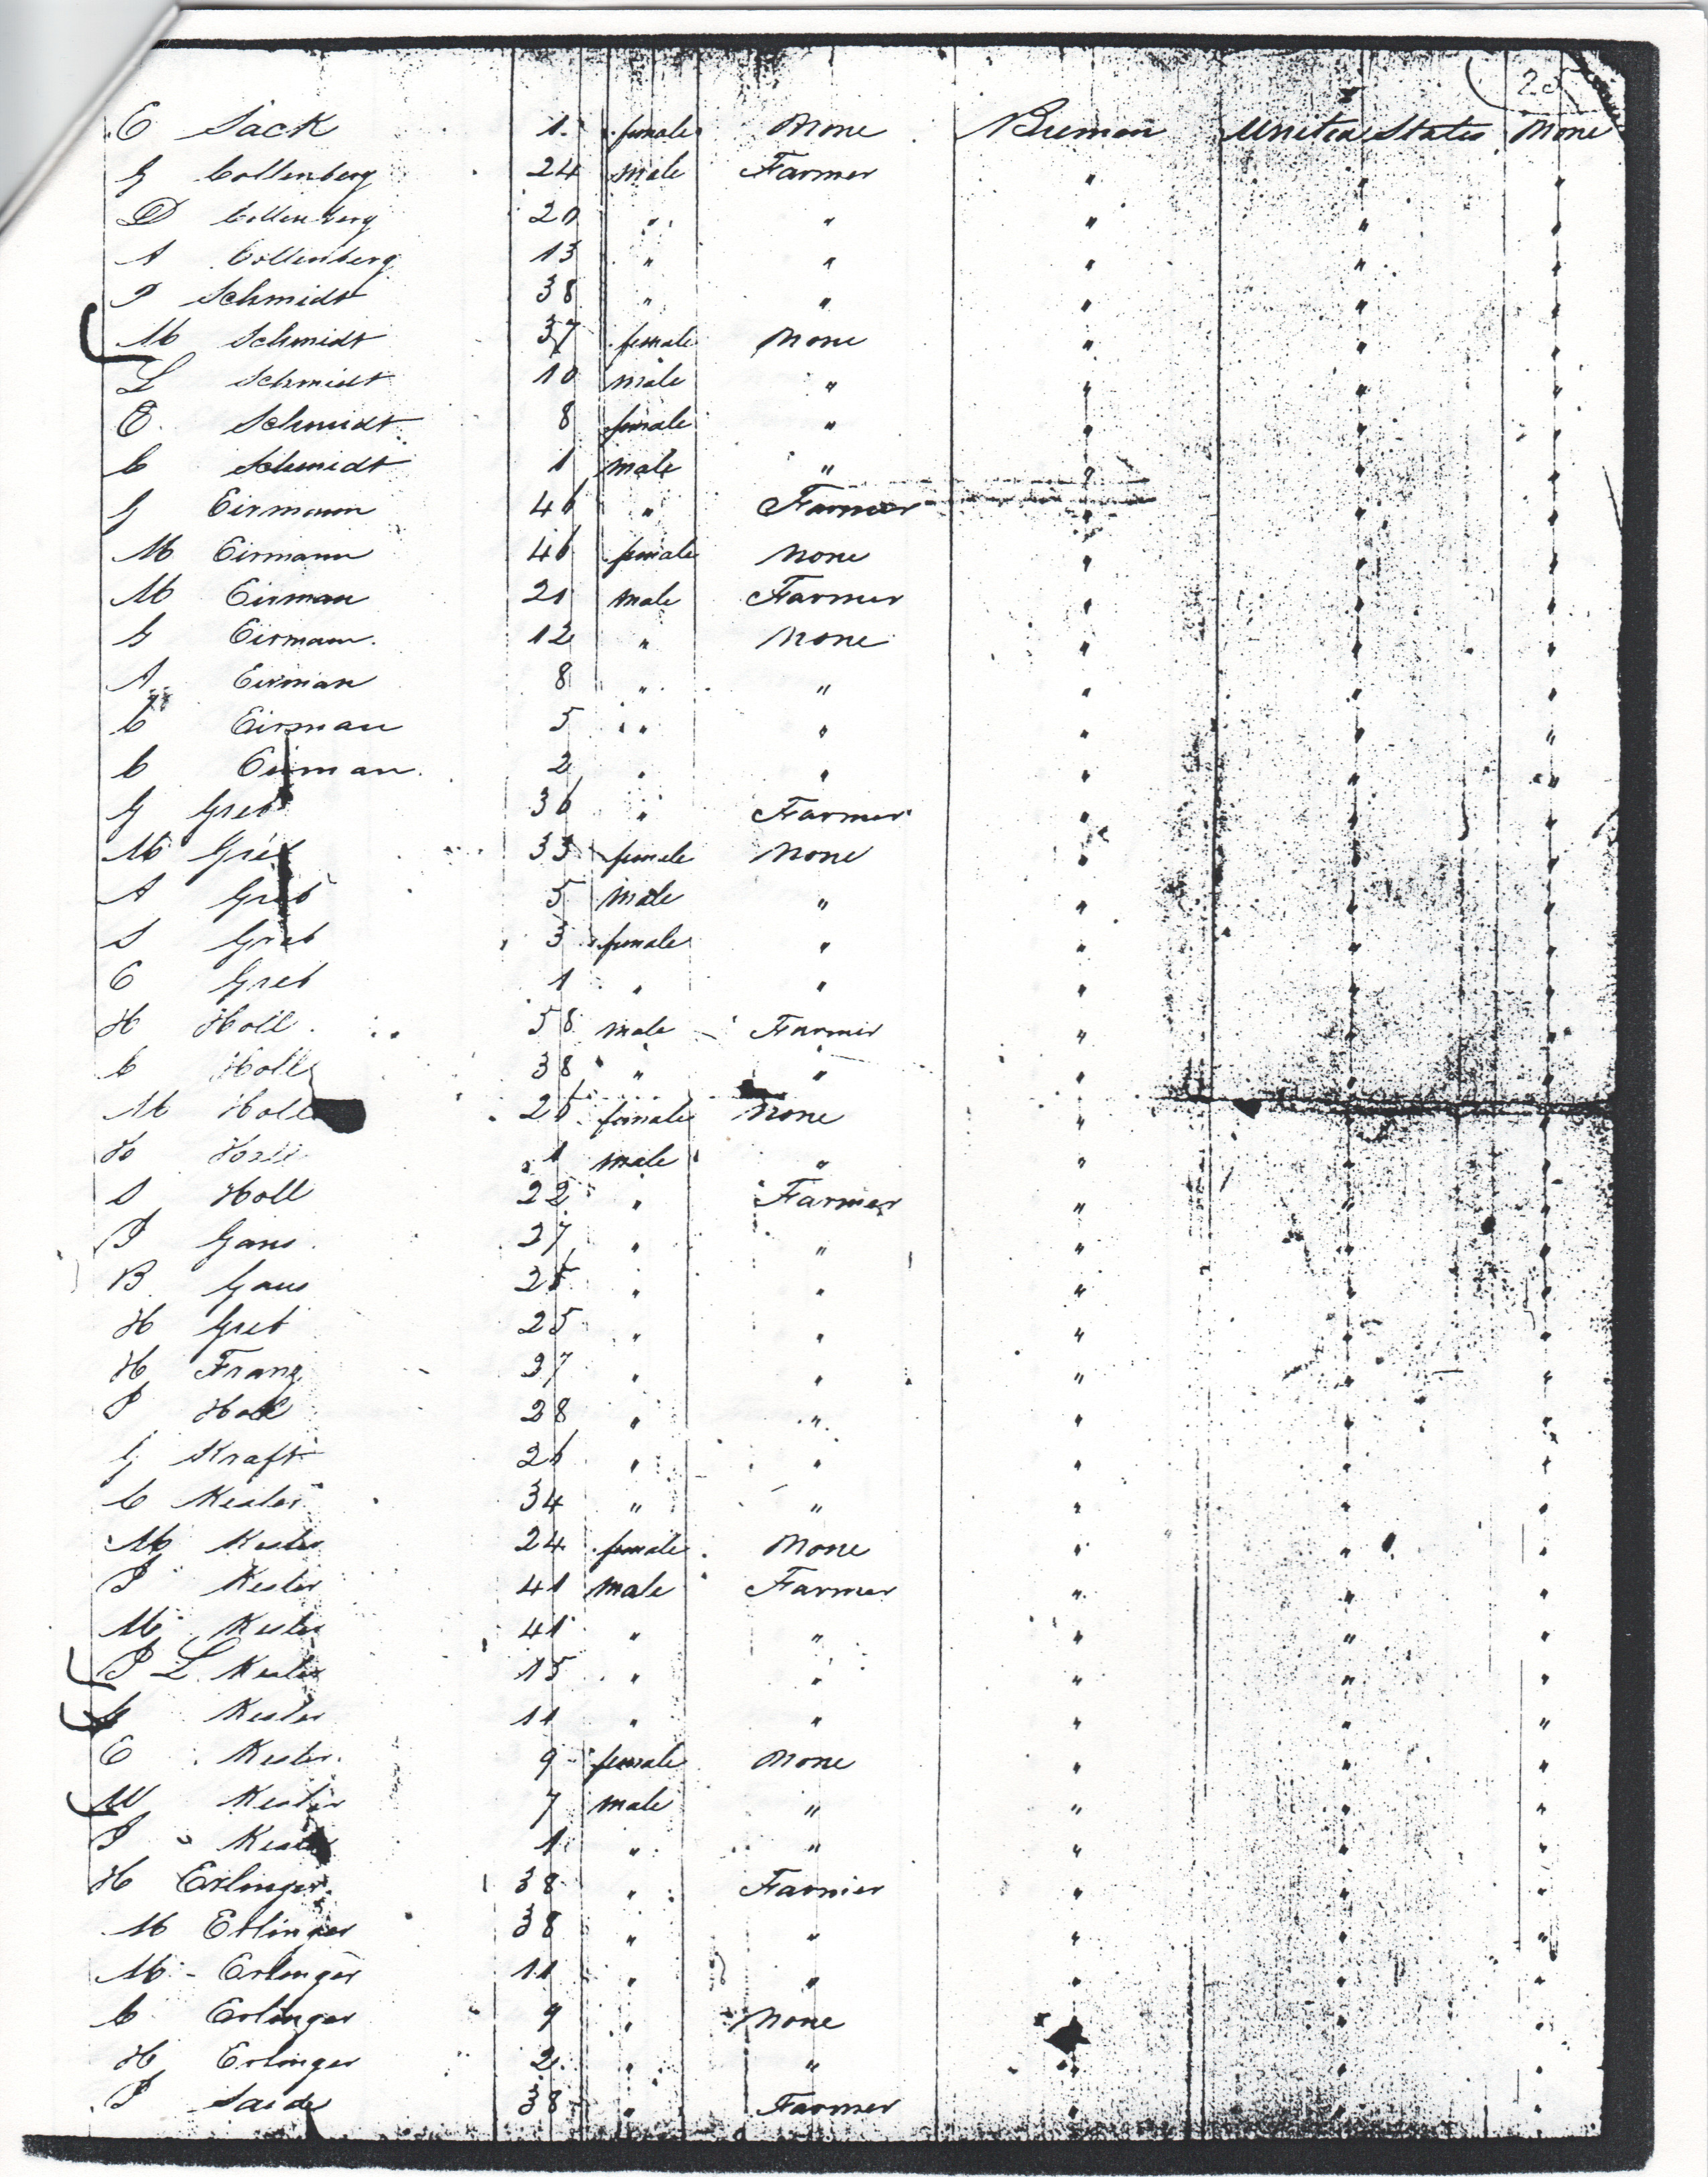 25
E Sack 1 female None Bremen United States None
G Collenberg 24 male Farmer " " "
D Collenberg 20 " " " " "
A Collenberg 13 " " " " "
P Schmidt 38 " " " " "
M Schmidt 37 female None " " "
L Schmidt 10 male " " " "
E Schmidt 8 female " " " "
C Schmidt 1 male " " " "
G Eirmann 46 " Farmer " " "
M Eirmann 46 female None " " "
M Eirman 21 male Farmer " " "
G Eirmann 12 " None " " "
A Eirman 8 " " " " "
C Eirman 5 " " " " "
C Eirman 2 " " " " "
G Greb 36 " Farmer " " "
M Greb 33 female None " " "
A Greb 5 male " " " "
S Greb 3 female " " " "
C Greb 1 " " " " "
H Holl 58 male Farmer " " "
C Holl 38 " " " " "
M Holl female None " " "
H 1 male " " " "
S Holl 22 " Farmer " " "
P Gans 27 " " " " "
B Gans " " " " "
H Greb 25 " " " " "
H Franz 37 " " " " "
P Holl 28 " " " " "
G Kraft 26 " " " " "
C Kesler 34 " " " " "
M Kesler 24 female None " " "
P Kesler 41 male Farmer " " "
M Kesler 41 " " " " "
P L Kesler 15 " " " " "
Kesler 11 " " " " "
E Kesler 9 female None " " "
W Kesler 7 male " " " "
P Kesler 1 " " " " "
H Erlinger 38 " Farmer " " "
M Erlinger 38 " " " " "
M Erlinger 11 " " " " "
C Erlinger 9 " None " " "
H Erlinger 2 " " " " "
P Saide 38 " Farmer " " "